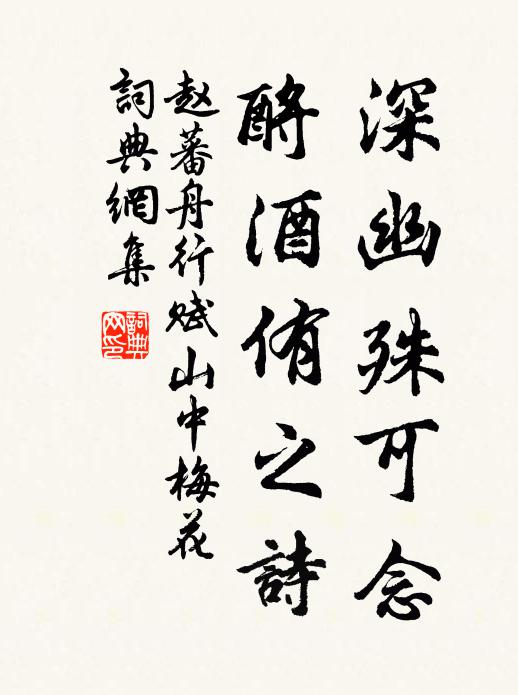 深幽殊可念
酹酒侑之詩
赵蕃舟行赋山中梅花
詞典網集
詞典
网印